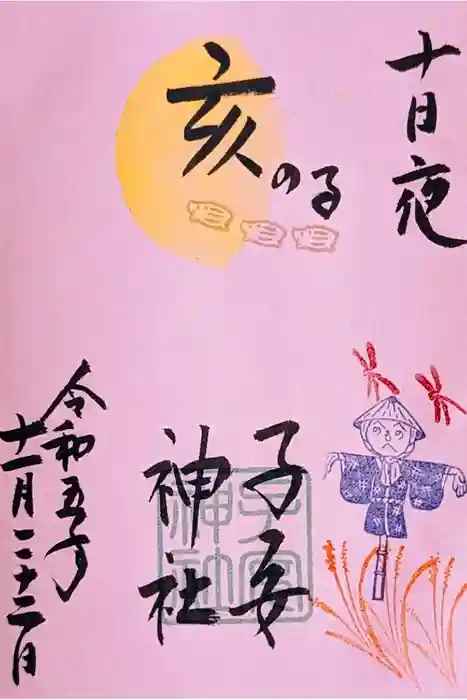 十日夜
亥の子
子安
神社
令和五年
十一月二十二日
子安
神社